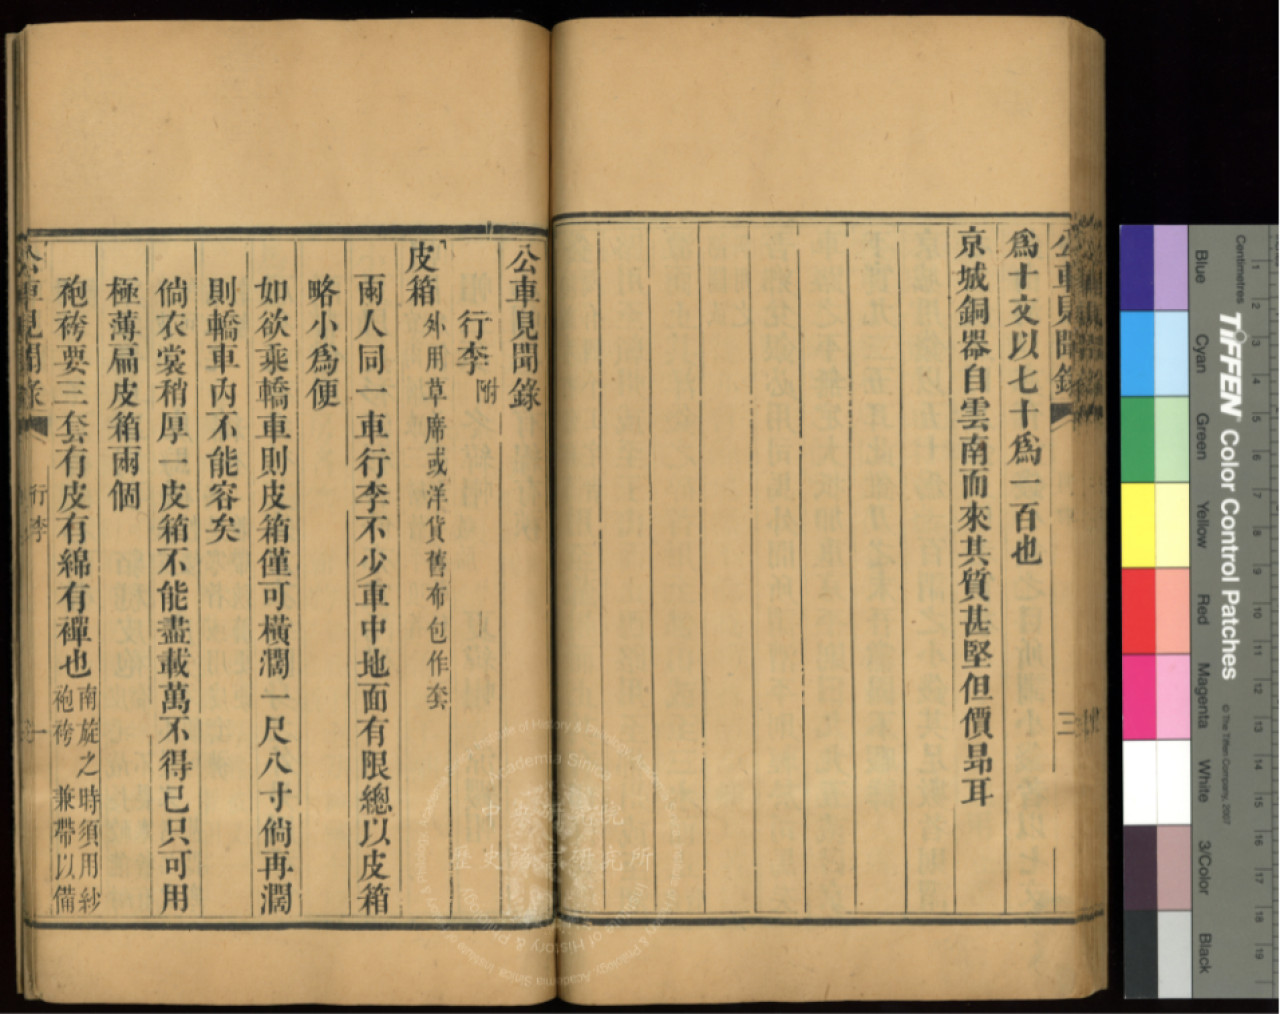 公車見聞錄
三
爲十文以七十爲一百也
京城銅器自雲南而來其質甚堅但價昻耳
公車見聞錄
行李附
皮箱外用草席或洋貨舊布包作套
兩人同一車行李不少車中地面有限總以皮箱
略小爲便
如欲乘轎車則皮箱僅可橫濶一尺八寸倘再濶
則轎車內不能容矣
倘衣裳稍厚一皮箱不能盡載萬不得已只可用
極薄扁皮箱兩個
袍袴要三套有皮有綿有襌也南旋之時須用紗
袍袴兼帶以備
公車見聞錄
行李
一
中央研究院
歷史語言研究所
Academia Sinica
Institute of History & Philology
Centimetres
TIFFEN Color Control Patches
© The Tiffen Company, 2007
Blue
Cyan
Green
Yellow
Red
Magenta
White
3/Color
Black
1
2
3
4
5
6
7
8
9
10
11
12
13
14
15
16
17
18
19